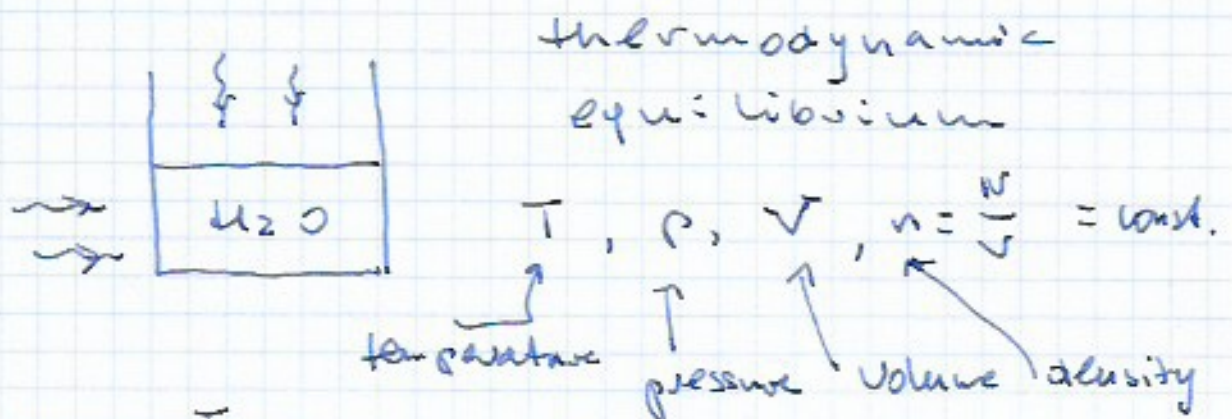 thermodynamic
equilibrium
H2O
T, P, V, n = N/V = const.
temperature
pressure
volume
density